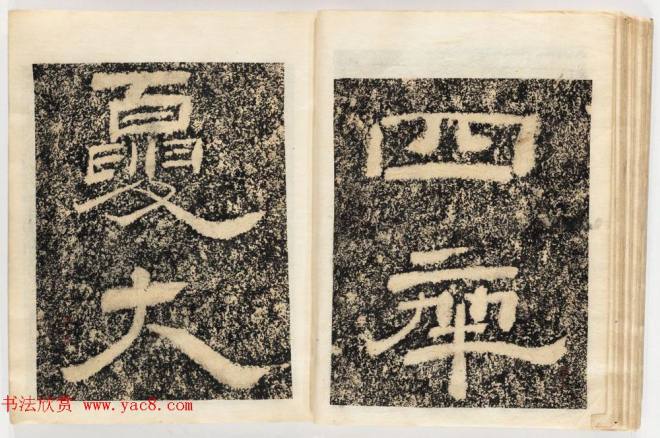 四年
夏大
书法欣赏 www.yac8.com